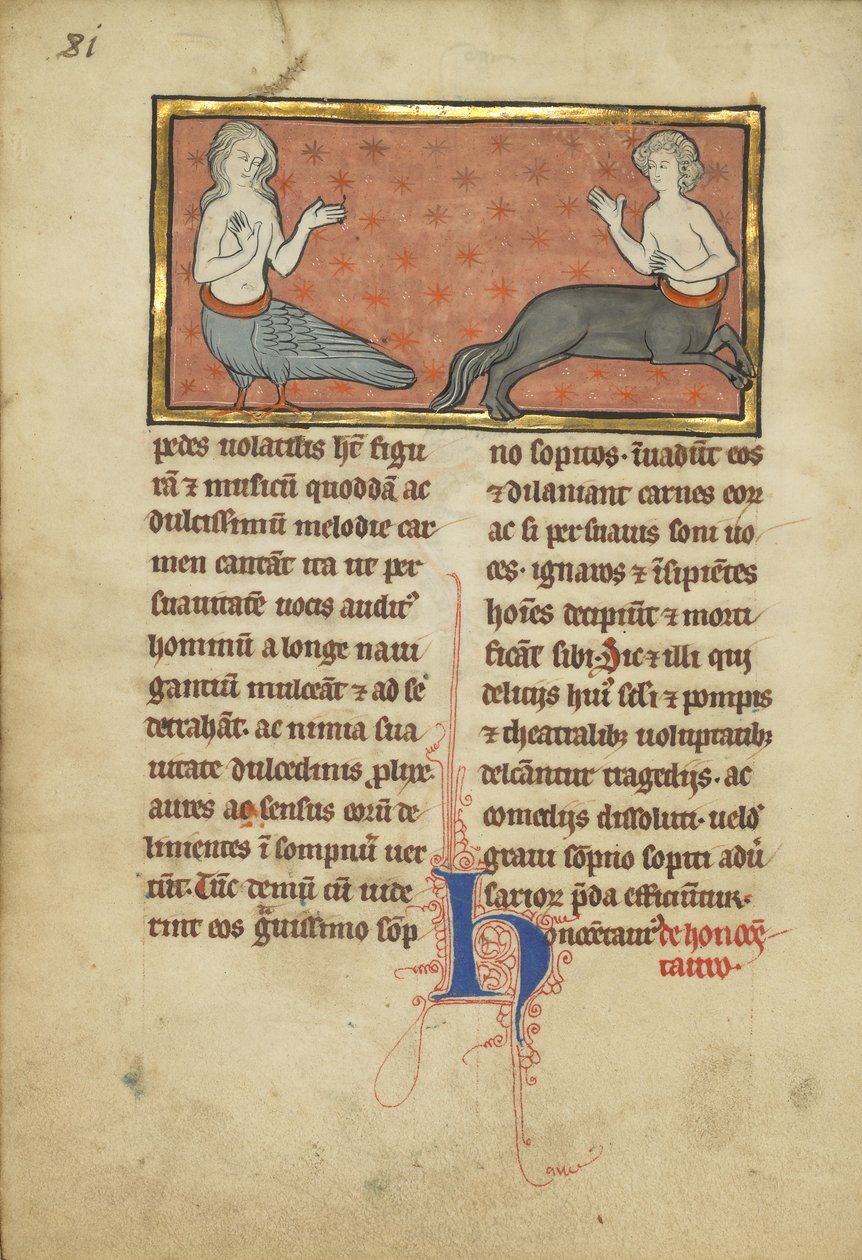 8i
pedes uolatilis hn̄t figu
rā ⁊ musicū quoddā ac
dulcissimū melodie car
men cantāt ita ut per
suauitatē uocis auditꝰ
hominū a longe naui
gantiū mulceāt ⁊ ad se
detrahāt. ac nimia sua
uitate dulcedinis ꝓlixe
aures ac sensus eorū de
linientes ī sompnū uer
tūt. Tūc demū cū uide
rint eos gͣuissimo sōp
no sopitos. īuadūt eos
⁊ dilaniant carnes eoꝝ
ac si per suauis soni uo
ces. ignaros ⁊ īsipiētes
hoīes decipiūt ⁊ morti
ficāt sibi. Sic ⁊ illi qui
delicijs huiꝰ scl̄i ⁊ pompis
⁊ theatralibꝫ uoluptatibꝫ
delcāntur tragedijs. ac
comedijs dissoluti. uelđ
graui sōpno sopiti adū
sarioꝝ p̄da efficiūtur.
honocētaurꝰ de honocē
tauro.